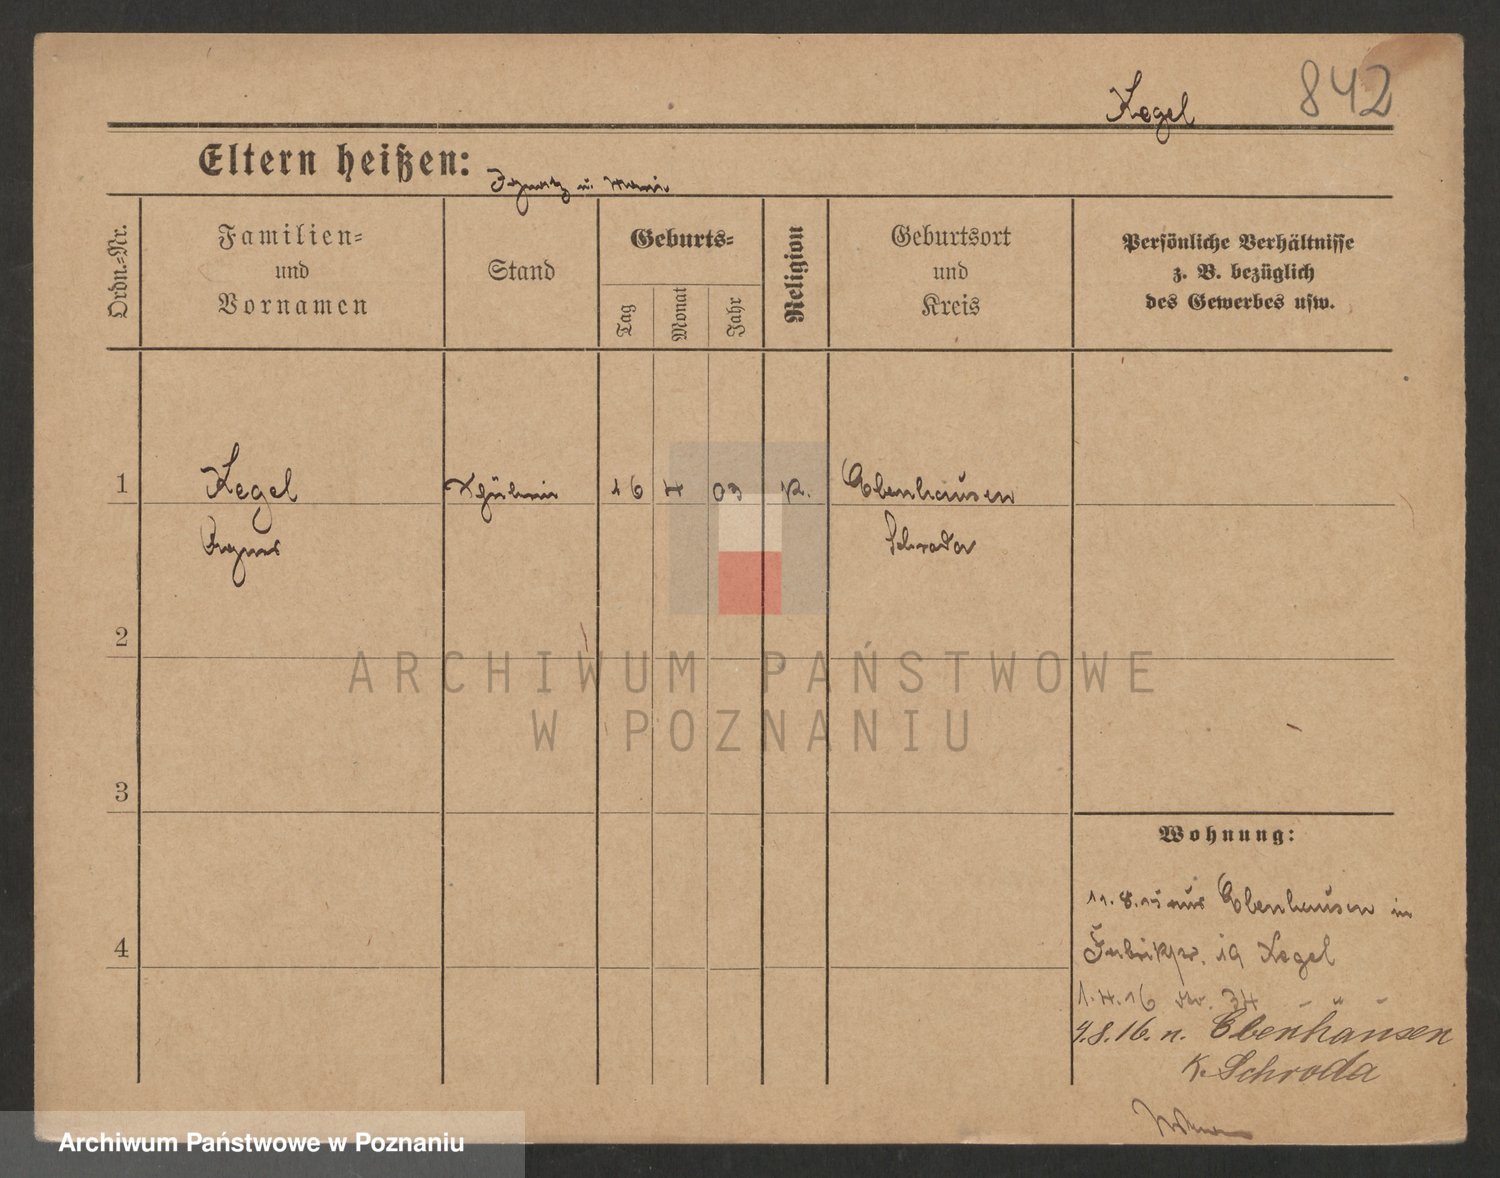 842
Kegel
Eltern heißen: Ignatz u. Marie
Ordn.-Nr.
Familien-
und
Vornamen
Stand
Geburts-
Tag
Monat
Jahr
Religion
Geburtsort
und
Kreis
Persönliche Verhältnisse
z. B. bezüglich
des Gewerbes usw.
1 Kegel Schülerin 16 4 03 k. Ebenhausen
Agnes Schroda
2
3
4
Wohnung:
11.8.15 aus Ebenhausen in
19 Kegel
1.4.16 34 - " -
4.8.16. n. Ebenhausen
K. Schroda
ARCHIWUM PAŃSTWOWE
W POZNANIU
Archiwum Państwowe w Poznaniu